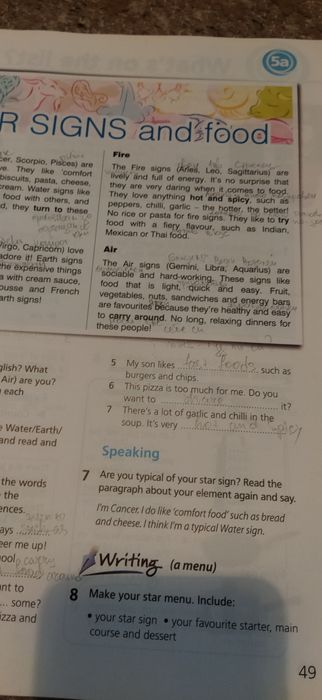 5a
R SIGNS and food
cer, Scorpio, Pisces) are
ve. They like 'comfort
biscuits, pasta, cheese,
cream. Water signs like
food with others, and
d, they turn to these
Virgo, Capricorn) love
adore it! Earth signs
the expensive things
s with cream sauce,
ousse and French
arth signs!
Fire
The Fire signs (Aries, Leo, Sagittarius) are
lively and full of energy. It's no surprise that
they are very daring when it comes to food.
They love anything hot and spicy, such as
peppers, chilli, garlic – the hotter, the better!
No rice or pasta for fire signs. They like to try
food with a fiery flavour, such as Indian,
Mexican or Thai food.
Air
The Air signs (Gemini, Libra, Aquarius) are
sociable and hard-working. These signs like
food that is light, quick and easy. Fruit,
vegetables, nuts, sandwiches and energy bars
are favourites because they're healthy and easy
to carry around. No long, relaxing dinners for
these people!
glish? What
Air) are you?
each
Water/Earth/
and read and
the words
the
ences.
ays
eer me up!
ool
ant to
... some?
izza and
5 My son likes fast foods such as
burgers and chips.
6 This pizza is too much for me. Do you
want to share it?
7 There's a lot of garlic and chilli in the
soup. It's very hot and spicy
Speaking
7 Are you typical of your star sign? Read the
paragraph about your element again and say.
I'm Cancer. I do like 'comfort food' such as bread
and cheese. I think I'm a typical Water sign.
Writing (a menu)
8 Make your star menu. Include:
• your star sign • your favourite starter, main
course and dessert
49